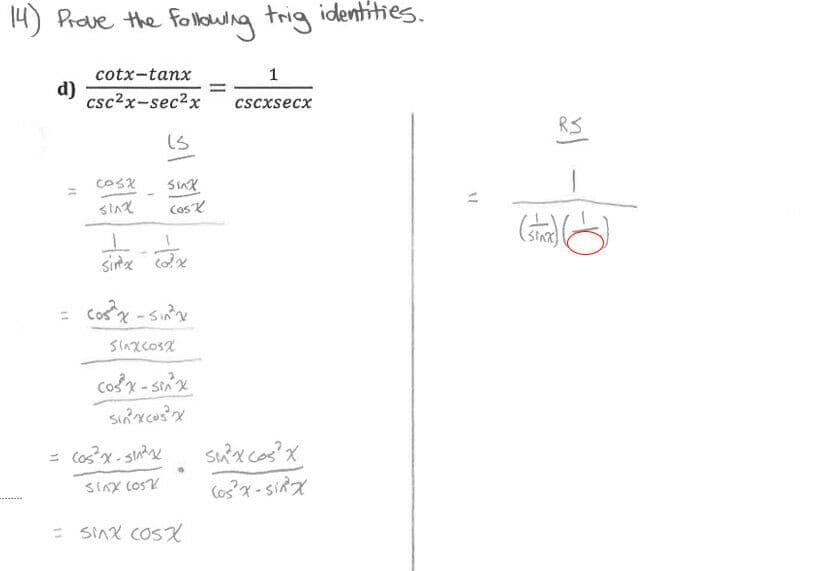 14) Prove the following trig identities.
d) cotx−tanx / csc²x−sec²x = 1 / cscxsecx
LS
= cosx/sinx - sinx/cosx
1/sin²x - 1/cos²x
= cos²x - sin²x
sinxcosx
cos²x - sin²x
sin²xcos²x
= cos²x - sin²x / sinx cosx • sin²x cos²x / cos²x - sin²x
= sinx cosx
RS
= 1
(1/sinx)(1/ )